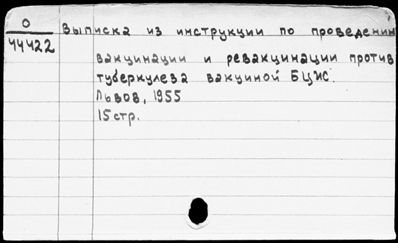 О
44422
Выписка из инструкции по проведению
вакцинации и ревакцинации против
туберкулеза вакциной БЦЖ.
Львов, 1955
15 стр.